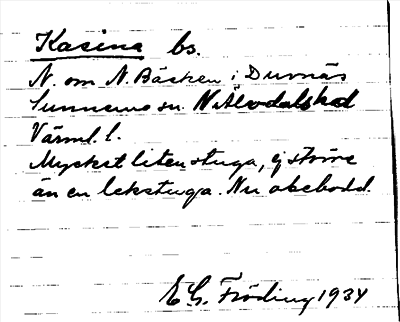 Kasina bs.
N. om N. Bäcken i Durnäs
Sunnemo sn. N Älvdals hd
Värml. l.
Mycket liten stuga, ej större
än en lekstuga. Nu obebodd.
E G. Fröding 1934